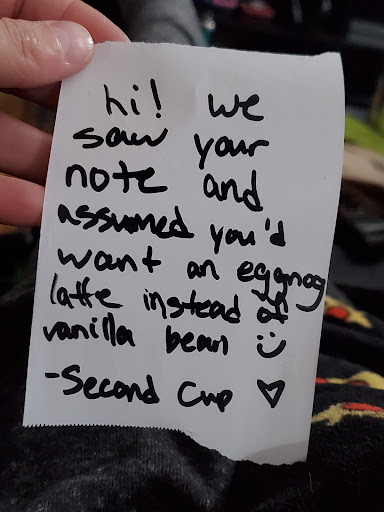 hi! we
saw your
note and
assumed you'd
want an eggnog
latte instead of
vanilla bean :)
-Second Cup ♡